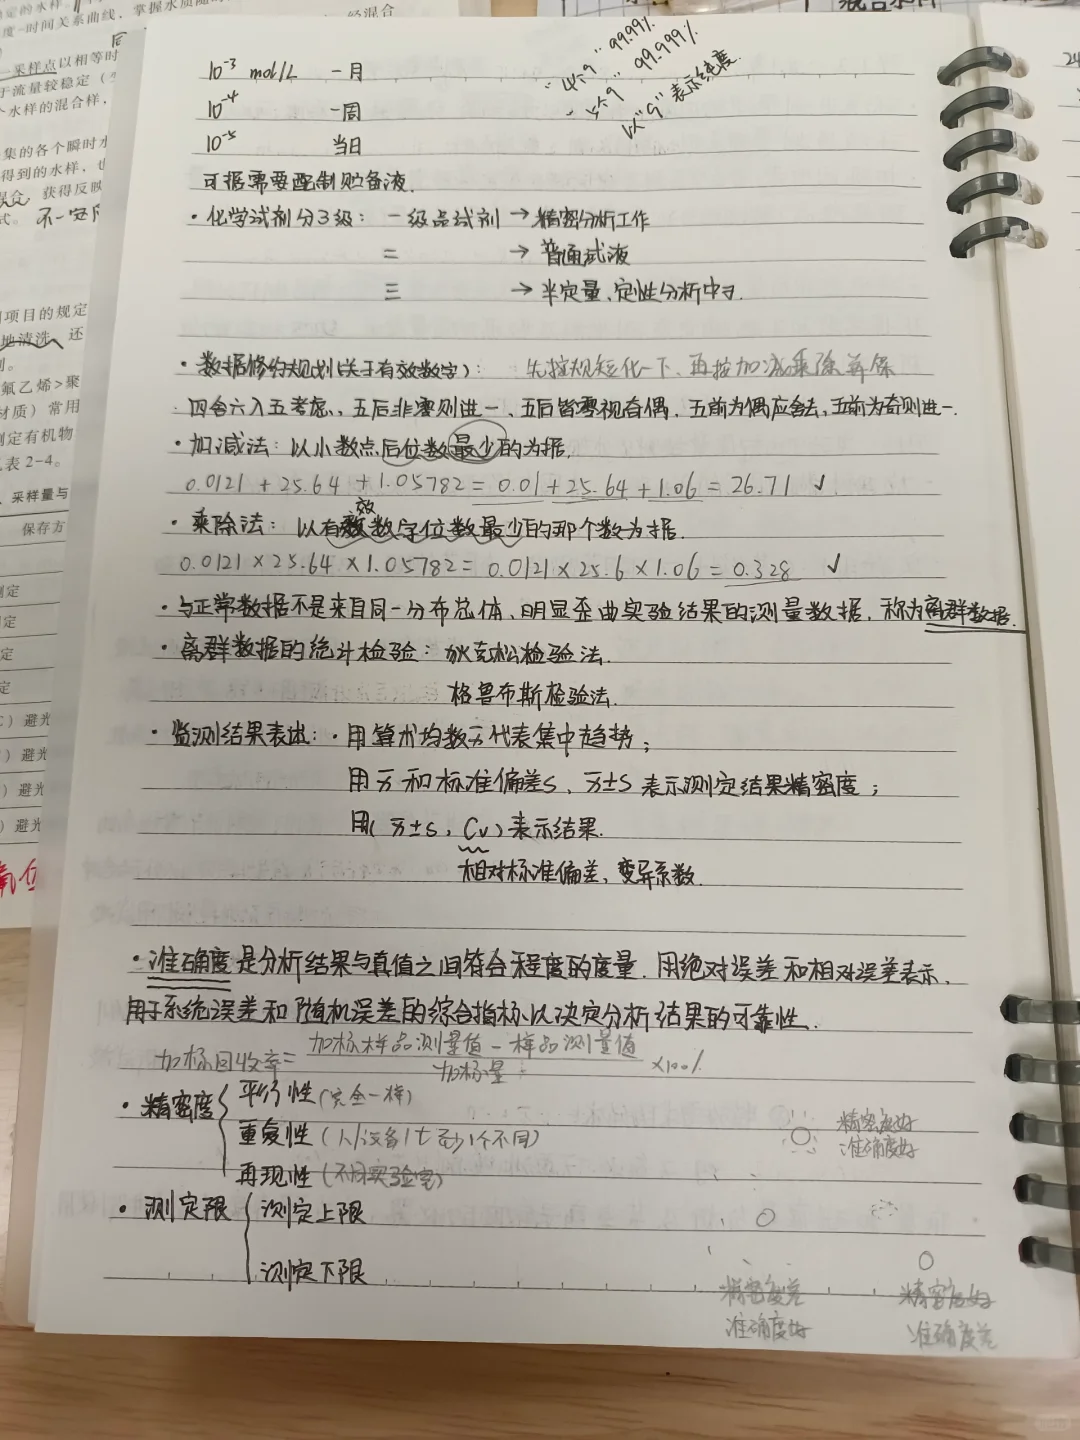 10⁻³ mol/L 一月
10⁻⁴ 一周
10⁻⁵ 当日
"4个9" 99.99%
"5个9" 99.999%
以"9"表示纯度.
可据需要配制贮备液.
·化学试剂分3级: 一级品试剂 → 精密分析工作
二 → 普通试液
三 → 半定量、定性分析中
·数据修约规则(关于有效数字): 先按规矩化一下、再按加减乘除算
四舍六入五考虑, 五后非零则进一、五后皆零视奇偶, 五前为偶应舍去, 五前为奇则进一.
·加减法: 以小数点后位数最少的为据.
0.0121 + 25.64 + 1.05782 = 0.01 + 25.64 + 1.06 = 26.71 ✓
·乘除法: 以有效数字位数最少的那个数为据.
0.0121 × 25.64 × 1.05782 = 0.0121 × 25.6 × 1.06 = 0.328 ✓
·与正常数据不是来自同一分布总体、明显歪曲实验结果的测量数据, 称为离群数据.
·离群数据的统计检验: 狄克松检验法.
格鲁布斯检验法.
·监测结果表述: ·用算术均数x̄代表集中趋势;
用x̄和标准偏差s、x̄±s表示测定结果精密度;
用(x̄±s, Cv)表示结果.
相对标准偏差, 变异系数.
·准确度是分析结果与真值之间符合程度的度量. 用绝对误差和相对误差表示.
用于系统误差和随机误差的综合指标以决定分析结果的可靠性.
加标回收率 = 加标样品测量值 - 样品测量值 / 加标量 ×100%
·精密度 { 平行性(完全一样)
重复性(人/设备/t至少1个不同)
再现性(不同实验室)
精密度好
准确度好
·测定限 { 测定上限
测定下限
精密度差
准确度好
精密度好
准确度差
度-时间关系曲线, 掌握水质随
采样点以相等时
于流量较稳定
个水样的混合样,
集的各个瞬时水
得到的水样,
混合, 获得反映
式。
项目的规定
地清洗、还
氟乙烯>聚
材质) 常用
测定有机物
表 2-4。
、采样量与
保存方
测定
定
定
定
) 避光
) 避光
) 避光
) 避光
24